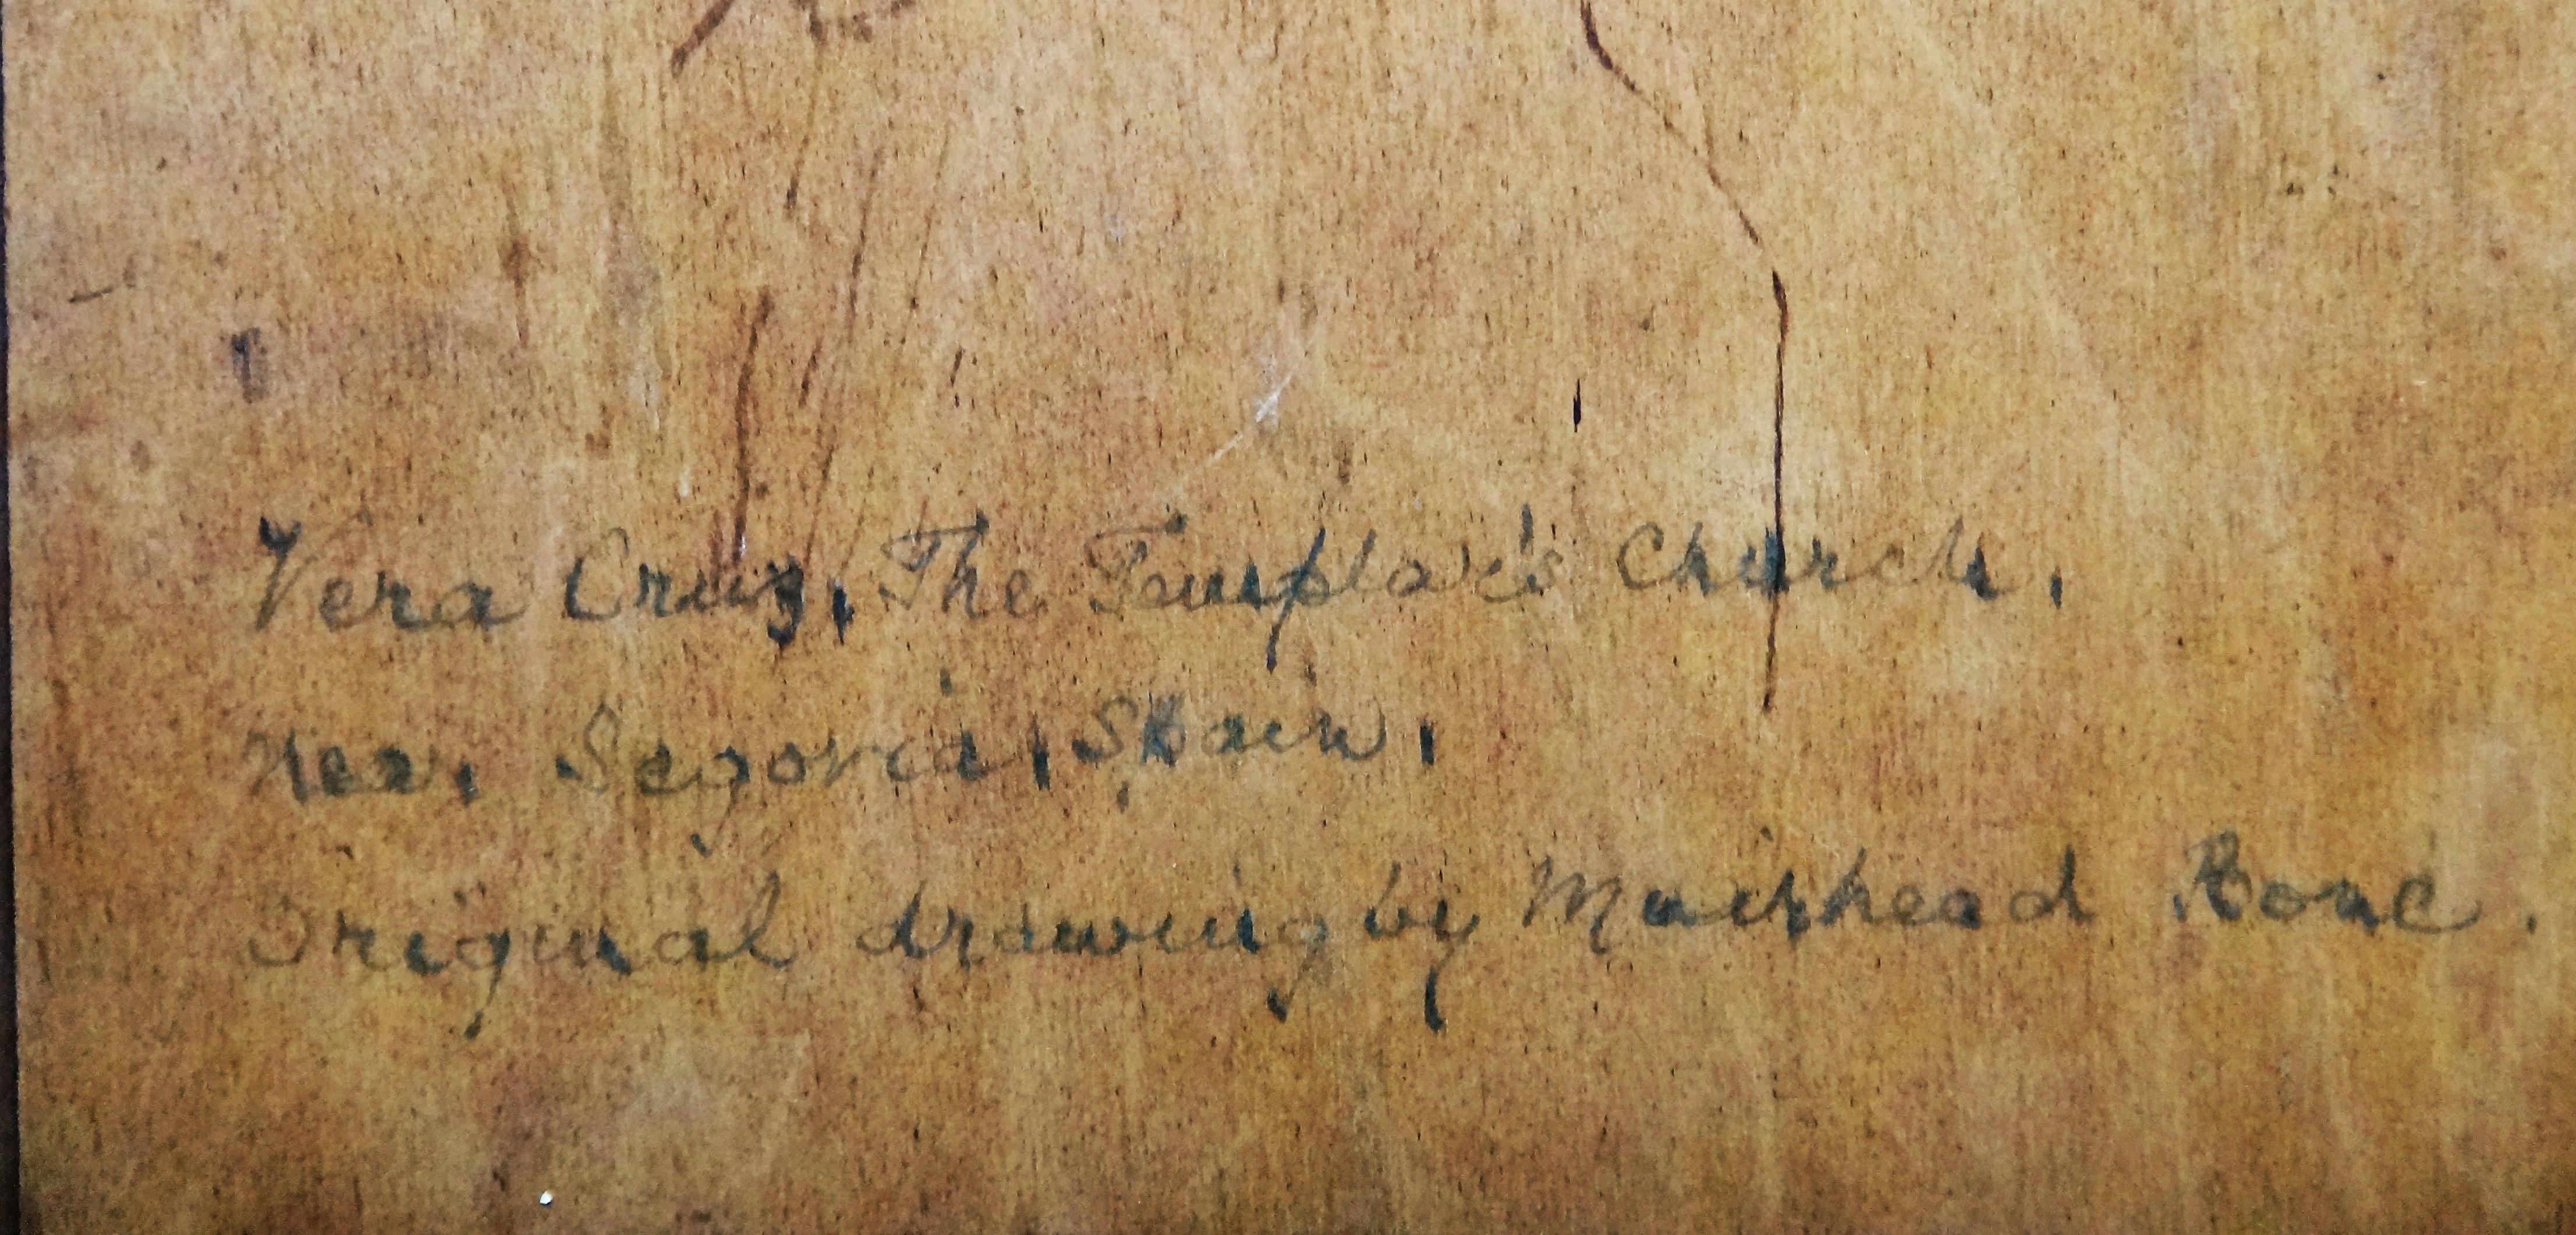 Vera Cruz, The Templar's Church,
near Segovia, Spain,
Original drawing by Muirhead Bone.